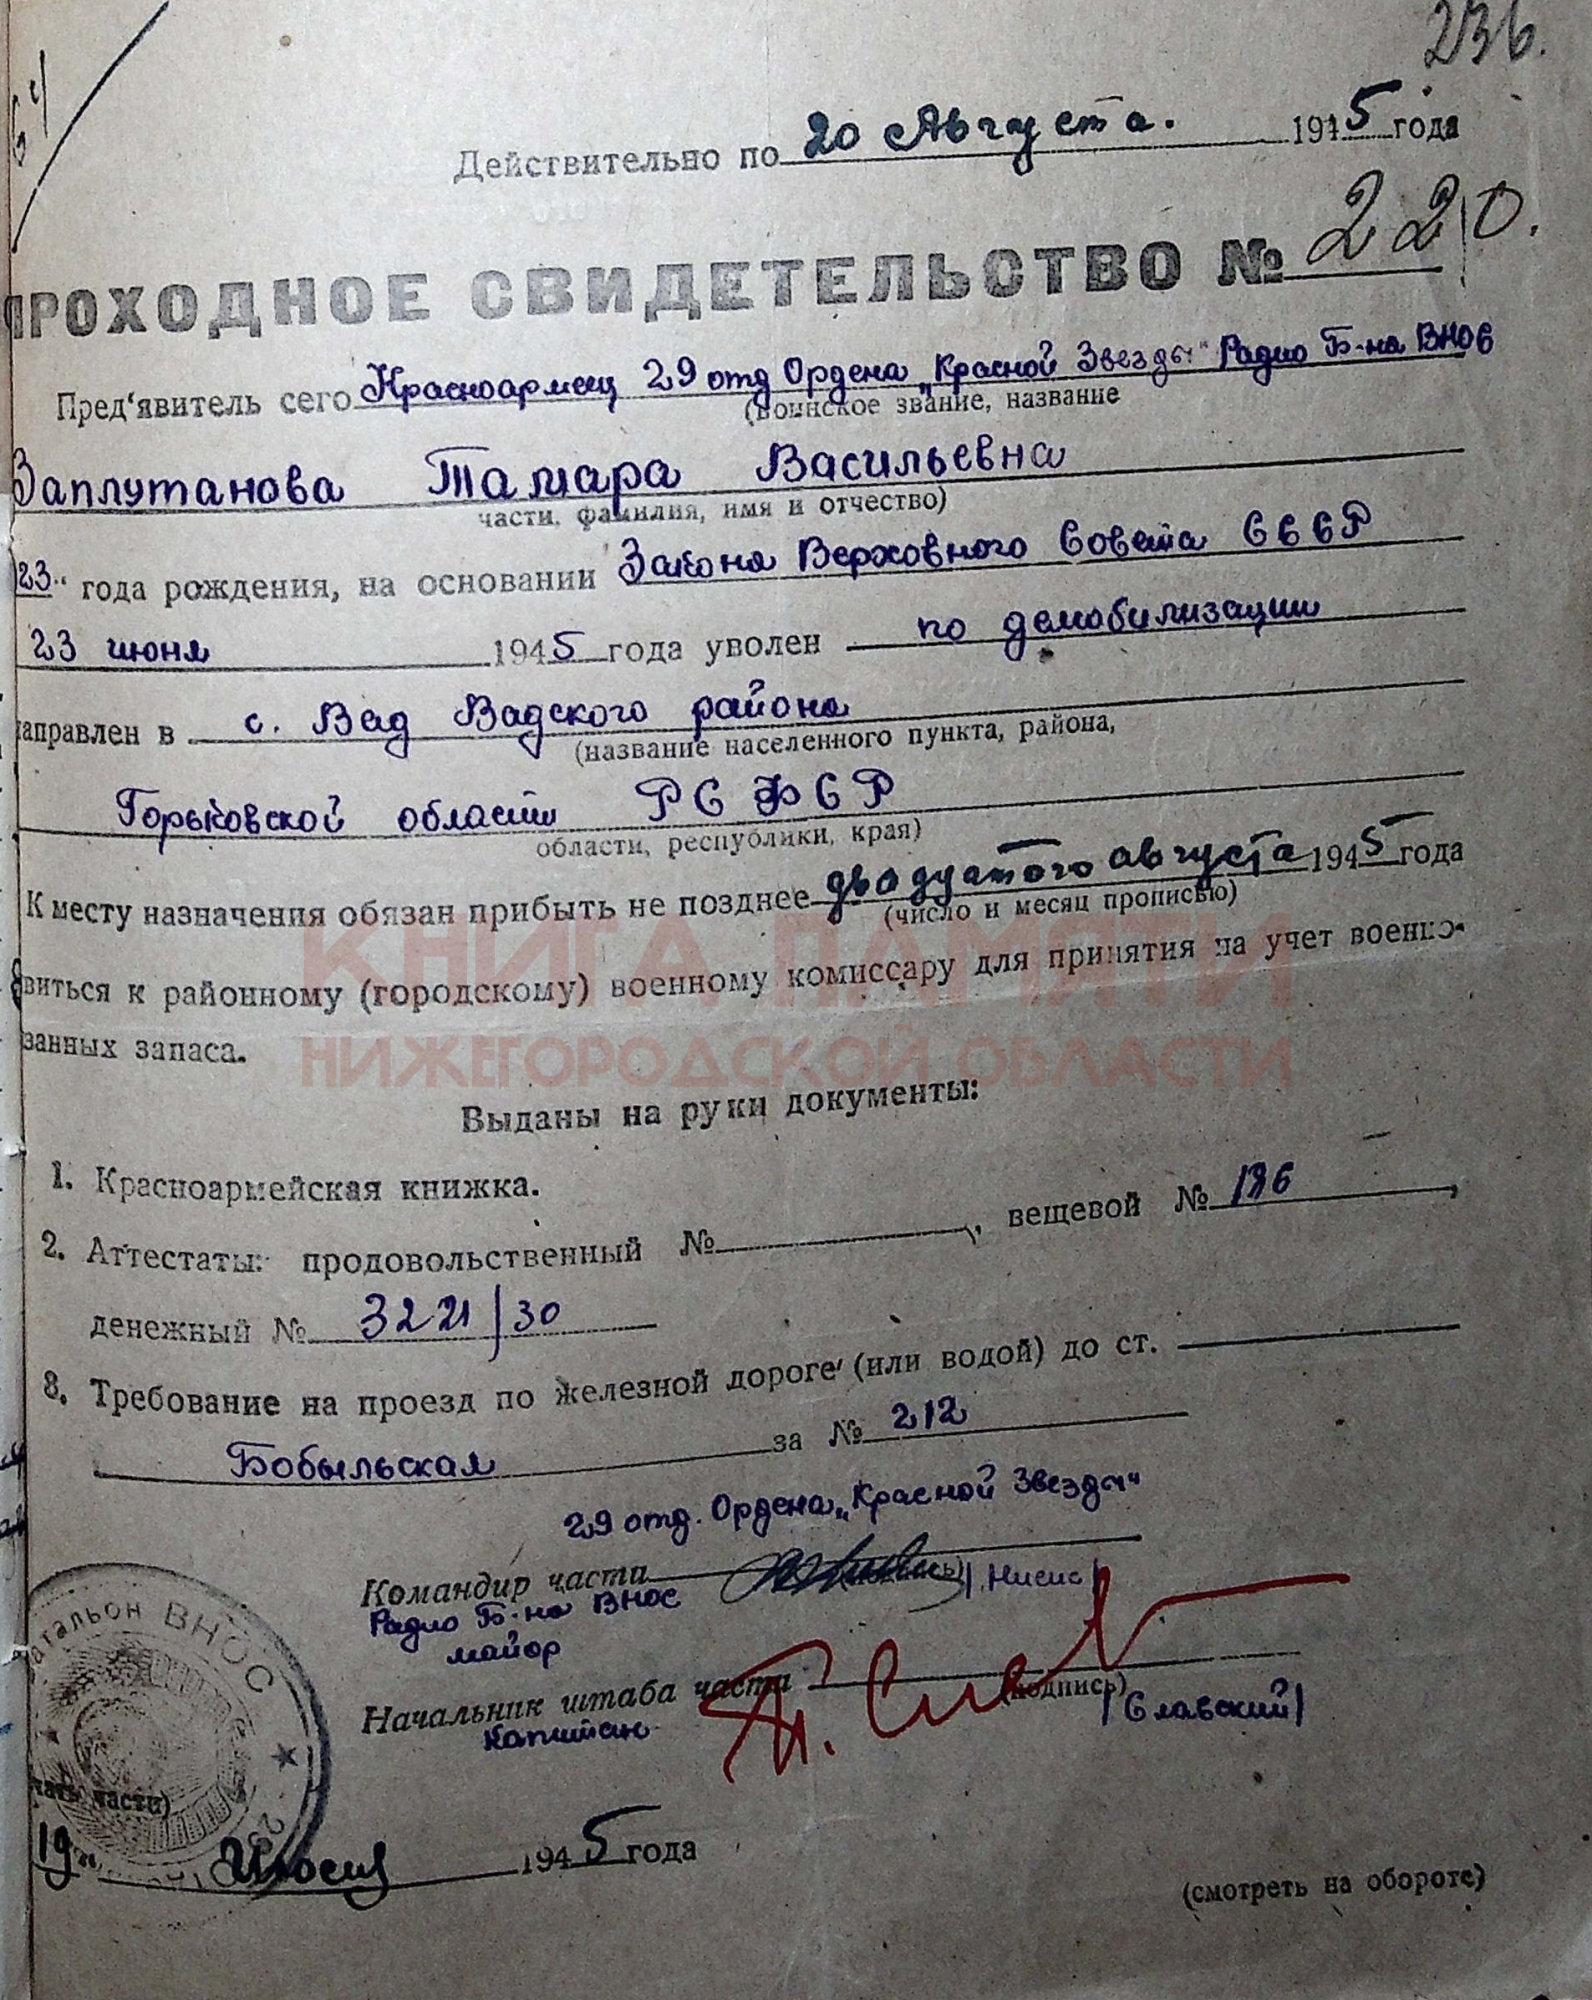 236.
64
Действительно по 20 Августа. 1945 года
ПРОХОДНОЕ СВИДЕТЕЛЬСТВО № 220.
Пред'явитель сего Красноармеец 29 отд Ордена „Красной Звезды" Радио Б-на ВНОС
(воинское звание, название
Заплутанова Тамара Васильевна
части, фамилия, имя и отчество)
23" года рождения, на основании Закона Верховного Совета СССР
23 июня 1945 года уволен по демобилизации
направлен в с. Вад Вадского района
(название населенного пункта, района,
Горьковской области РСФСР
области, республики, края)
К месту назначения обязан прибыть не позднее двадцатого августа 1945 года
(число и месяц прописью)
явиться к районному (городскому) военному комиссару для принятия на учет военно-
КНИГА ПАМЯТИ
занных запаса.
НИЖЕГОРОДСКОЙ ОБЛАСТИ
Выданы на руки документы:
1. Красноармейская книжка.
2. Аттестаты: продовольственный № , вещевой № 196
денежный № 3221/30
3. Требование на проезд по железной дороге (или водой) до ст.
Бобыльская за № 212
29 отд. Ордена „Красной Звезды"
Командир части (подпись) /Нисис/
Радио Б-на ВНОС
майор
Начальник штаба части (подпись) /Славский/
Капитан
батальон ВНОС
29
чать части)
19 " 1945 года
(смотреть на обороте)